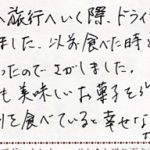 へ旅行へいく際、ドライ
ました。以前食べた時と
ったのでさがしました。
も美味しいお菓子を
を食べていると幸せな